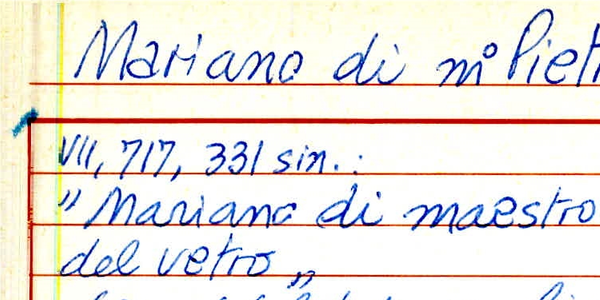 Mariano di mº Piet
VII, 717, 331 sin.:
"Mariano di maestro
del vetro"